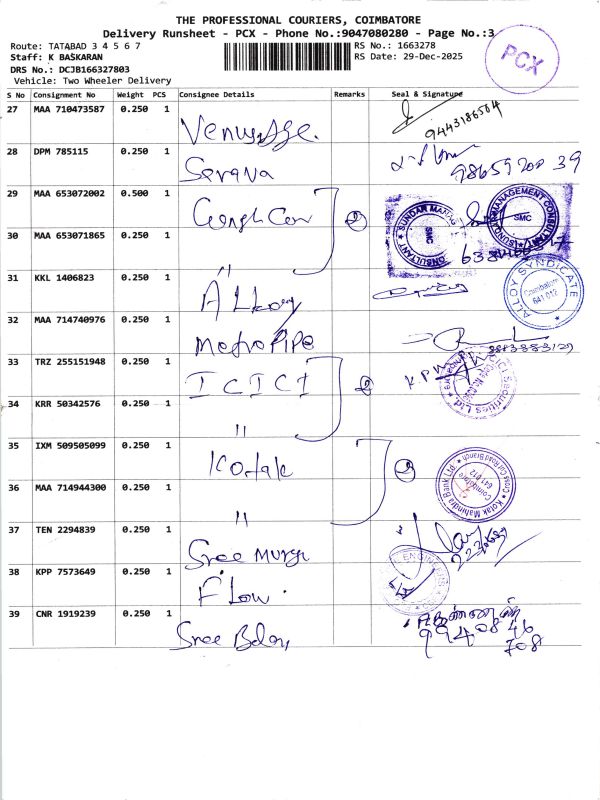 THE PROFESSIONAL COURIERS, COIMBATORE
Delivery Runsheet - PCX - Phone No.:9047080280 - Page No.:3
Route: TATABAD 3 4 5 6 7
RS No.: 1663278
Staff: K BASKARAN
RS Date: 29-Dec-2025
DRS No.: DCJB166327803
Vehicle: Two Wheeler Delivery
PCX
S No Consignment No Weight PCS Consignee Details Remarks Seal & Signature
27 MAA 710473587 0.250 1
9443186564
28 DPM 785115 0.250 1 Sarana
98659 200 39
29 MAA 653072002 0.500 1
②
SUNDAR MANAGEMENT CONSULTANT
SMC
30 MAA 653071865 0.250 1 "
31 KKL 1406823 0.250 1 Alloy
ALLOY SYNDICATE
Coimbatore
641 012
32 MAA 714740976 0.250 1 Metro PIPE
33 TRZ 255151948 0.250 1 ICICI
②
ICICI Securities Ltd.
34 KRR 50342576 0.250 1 "
35 IXM 509505099 0.250 1 Kotak
②
Kotak Mahindra Bank Ltd.
Cross Cut Road Branch
Coimbatore
641 012
36 MAA 714944300 0.250 1 "
37 TEN 2294839 0.250 1 Sree Murga
38 KPP 7573649 0.250 1 Flow
39 CNR 1919239 0.250 1
99408 46
708